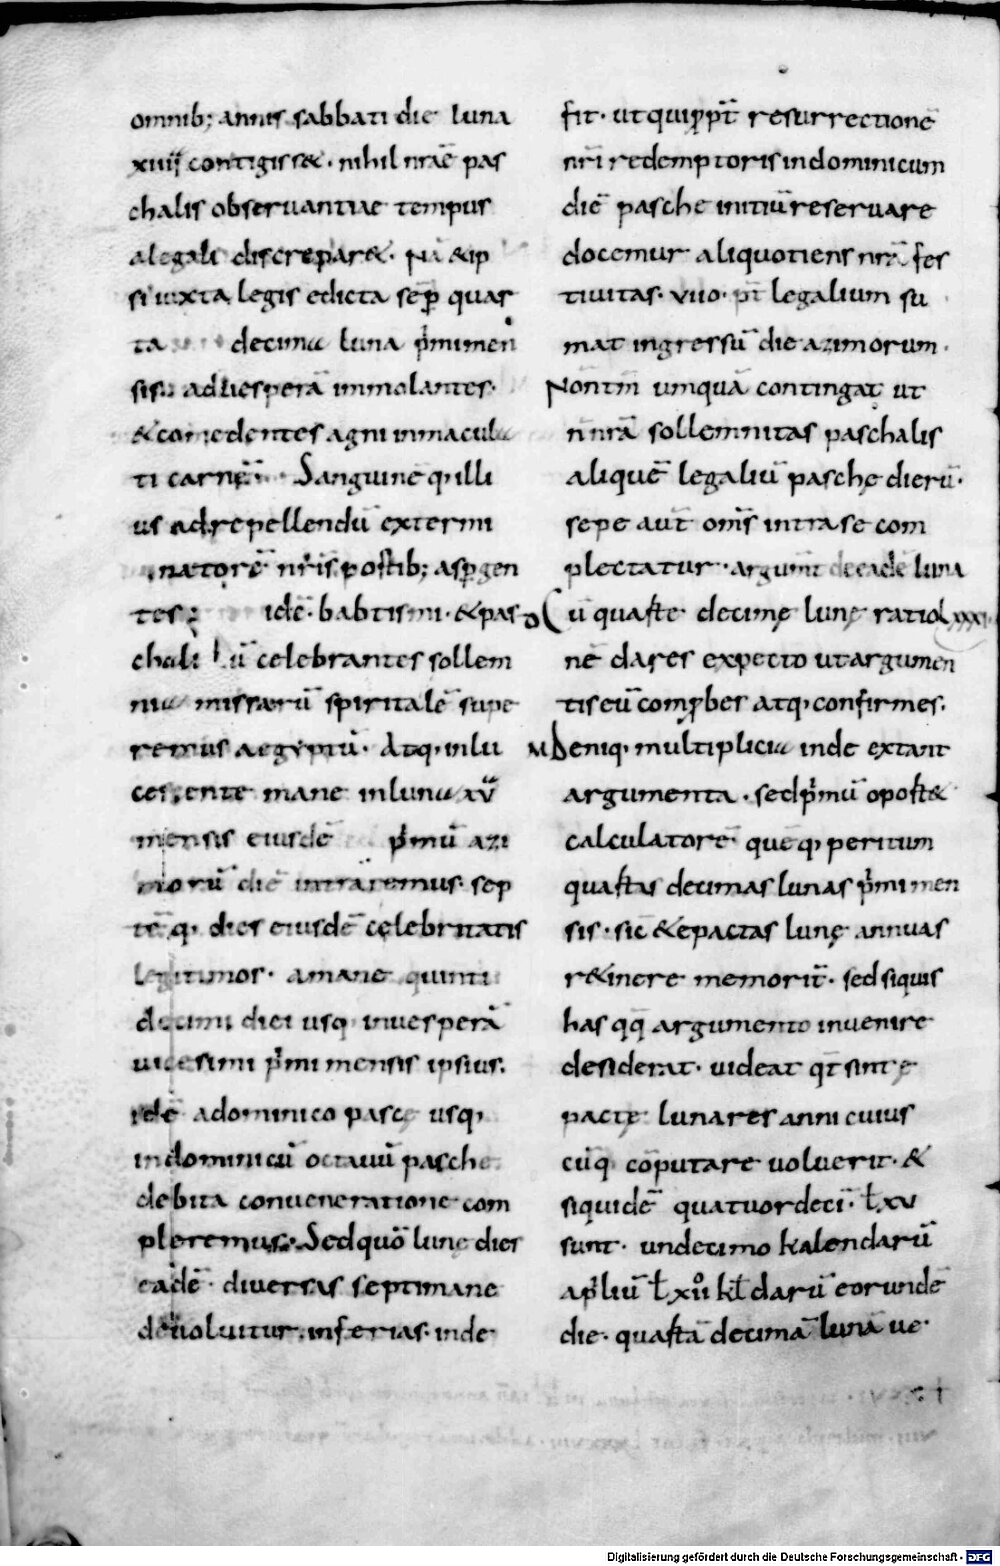 omnib; annis sabbati die luna
xiiij contigiss&. nihil nrae pas
chalis obseruantiae tempus
alegali discrepar&. Nā &ip
si iuxta legis edicta sēp quar
ta decima luna p̄mi men
sis. ad uesperā immolantes.
& comedentes agni inmacula
ti carnē. Sanguinē q; illi
us adrepellendū extermi
natorē nris postib; aspgen
tes; idē. babtismi. & pas
chaliū celebrantes sollem
nia missarū spiritalē supe
remus aegyptū. Atq; inlu
cescente mane inluna xv
mensis eiusdē p̄mū azi
morū diē intraremus. sep
tē q; dies eiusdē celebritatis
legitimos. amane quinti
decimi diei usq; inuesperā
uicesimi p̄mi mensis ipsius.
idē adominico pascę usq;
indominicū octauū paschę
debita conueneratione com
pleremus. Sed quō lunę dies
eadē. diuersas septimane
deuoluitur inferias. inde
fit. ut qui pp̄t resurrectionē
nr̄i redemptoris indominicum
diē pasche initiū reseruare
docemur aliquotiens nr̄a fes
tiuitas. viio. legalium su
mat ingressū die azimorum.
Nontm̄ umquā contingat ut
n̄ nrā sollemnitas paschalis
aliquē legaliū paschę dierū.
sepe aut̄ om̄s intra se com
plectatur. argum̄t de eadē luna
Cū quarte decimę lunę ratio lxxxi
nē dares expecto ut argumen
tis eū comp̄bes atq; confirmes.
M Deniq; multiplicia inde extant
argumenta. sed p̄mū oport&
calculatorē queq; peritum
quartas decimas lunas p̄mi men
sis. sic̄ & epactas lunę annuas
r&inere memorit̄. sed siquis
has qq; argumento inuenire
desiderat. uideat qt̄ sint ę
pactę lunares anni cuius
cūq; cōputare uoluerit. &
siquidē quatuordeci. ł xv
sunt. undecimo kalendarū
apliū ł xii kł darū eorundē
die. quartā decimā lunā ue.